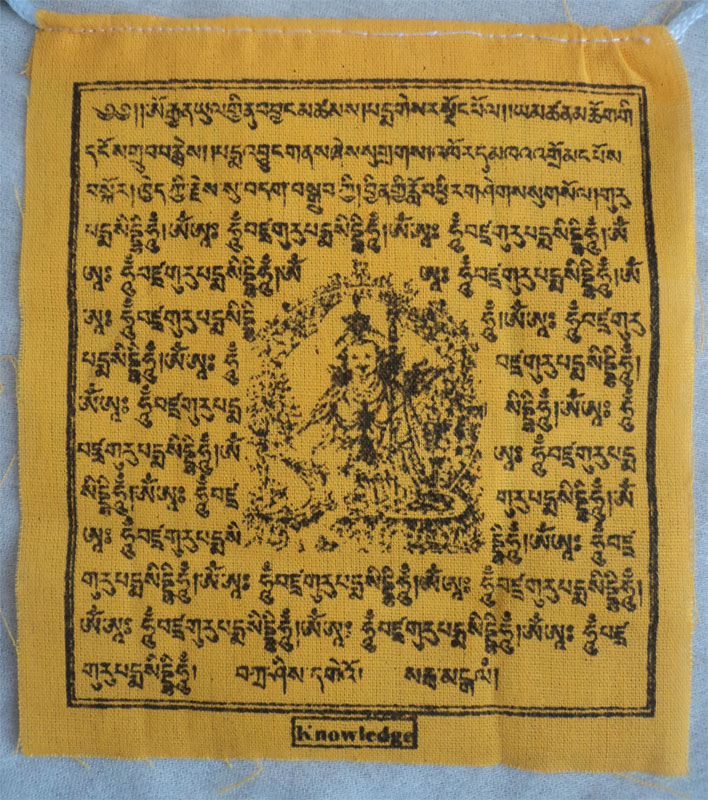 ༄༅།།ༀ་རྒྱན་ཡུལ་གྱི་ནུབ་བྱང་མཚམས།པདྨ་གེ་སར་སྡོང་པོ་ལ།།ཡ་མཚན་མཆོག་གི
དངོས་གྲུབ་བརྙེས།།པདྨ་འབྱུང་གནས་ཞེས་སུ་གྲགས།འཁོར་དུ་མཁའ་འགྲོ་མང་པོས
བསྐོར།ཁྱེད་ཀྱི་རྗེས་སུ་བདག་བསྒྲུབ་ཀྱི།བྱིན་གྱི་རློབ་ཕྱིར་གཤེགས་སུ་གསོལ།གུ་རུ
པདྨ་སིདྡྷི་ཧཱུྃ།ཨོཾ་ཨཱཿ ཧཱུྃ་བཛྲ་གུ་རུ་པདྨ་སིདྡྷི་ཧཱུྃ།ཨོཾ་ཨཱཿ ཧཱུྃ་བཛྲ་གུ་རུ་པདྨ་སིདྡྷི་ཧཱུྃ།ཨོཾ
ཨཱཿ ཧཱུྃ་བཛྲ་གུ་རུ་པདྨ་སིདྡྷི་ཧཱུྃ།ཨོཾ ཨཱཿ ཧཱུྃ་བཛྲ་གུ་རུ་པདྨ་སིདྡྷི་ཧཱུྃ།ཨོཾ
ཨཱཿ ཧཱུྃ་བཛྲ་གུ་རུ་པདྨ་སིདྡྷི ཧཱུྃ།ཨོཾ་ཨཱཿ ཧཱུྃ་བཛྲ་གུ་རུ
པདྨ་སིདྡྷི་ཧཱུྃ།ཨོཾ་ཨཱཿ ཧཱུྃ བཛྲ་གུ་རུ་པདྨ་སིདྡྷི་ཧཱུྃ།
ཨོཾ་ཨཱཿ ཧཱུྃ་བཛྲ་གུ་རུ་པདྨ སིདྡྷི་ཧཱུྃ།ཨོཾ་ཨཱཿ ཧཱུྃ
བཛྲ་གུ་རུ་པདྨ་སིདྡྷི་ཧཱུྃ།ཨོཾ ཨཱཿ ཧཱུྃ་བཛྲ་གུ་རུ་པདྨ
སིདྡྷི་ཧཱུྃ།ཨོཾ་ཨཱཿ ཧཱུྃ་བཛྲ གུ་རུ་པདྨ་སིདྡྷི་ཧཱུྃ།ཨོཾ
ཨཱཿ ཧཱུྃ་བཛྲ་གུ་རུ་པདྨ་སི དྡྷི་ཧཱུྃ།ཨོཾ་ཨཱཿ ཧཱུྃ་བཛྲ
གུ་རུ་པདྨ་སིདྡྷི་ཧཱུྃ།ཨོཾ་ཨཱཿ ཧཱུྃ་བཛྲ་གུ་རུ་པདྨ་སིདྡྷི་ཧཱུྃ།ཨོཾ་ཨཱཿ ཧཱུྃ་བཛྲ་གུ་རུ་པདྨ་སིདྡྷི་ཧཱུྃ།
ཨོཾ་ཨཱཿ ཧཱུྃ་བཛྲ་གུ་རུ་པདྨ་སིདྡྷི་ཧཱུྃ།ཨོཾ་ཨཱཿ ཧཱུྃ་བཛྲ་གུ་རུ་པདྨ་སིདྡྷི་ཧཱུྃ།ཨོཾ་ཨཱཿ ཧཱུྃ་བཛྲ
གུ་རུ་པདྨ་སིདྡྷི་ཧཱུྃ། བཀྲ་ཤིས་དགེའོ། སརྦ་མངྒ་ལཾ།
Knowledge